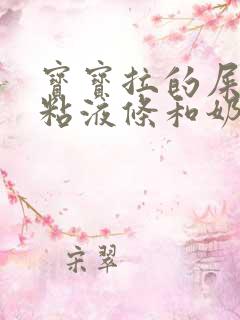 寶寶拉的屎
粘液條和奶
宋翠